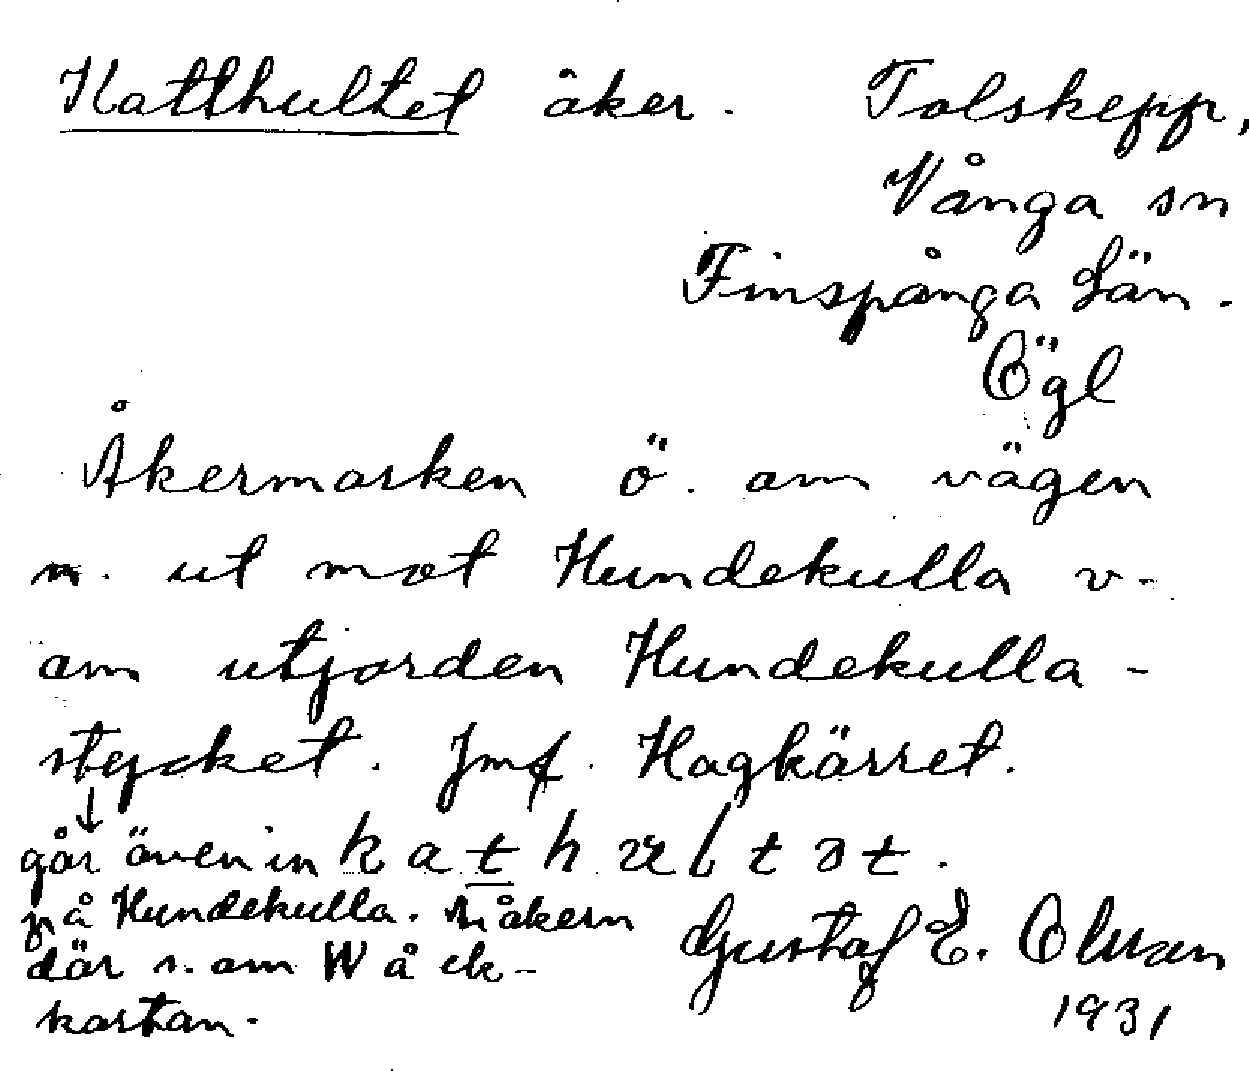 Katthultet åker. Tolskepp,
Vånga sn
Finspånga Län.
Ögl
Åkermarken ö. om vägen
n. ut mot Hundekulla v.
om utjorden Hundekulla-
stycket. Jmf. Hagkärret.
går även in k a t h u l t ə t.
på Hundekulla. åkern
där s. om Wåck-
kartan.
Gustaf E. Olsson
1931